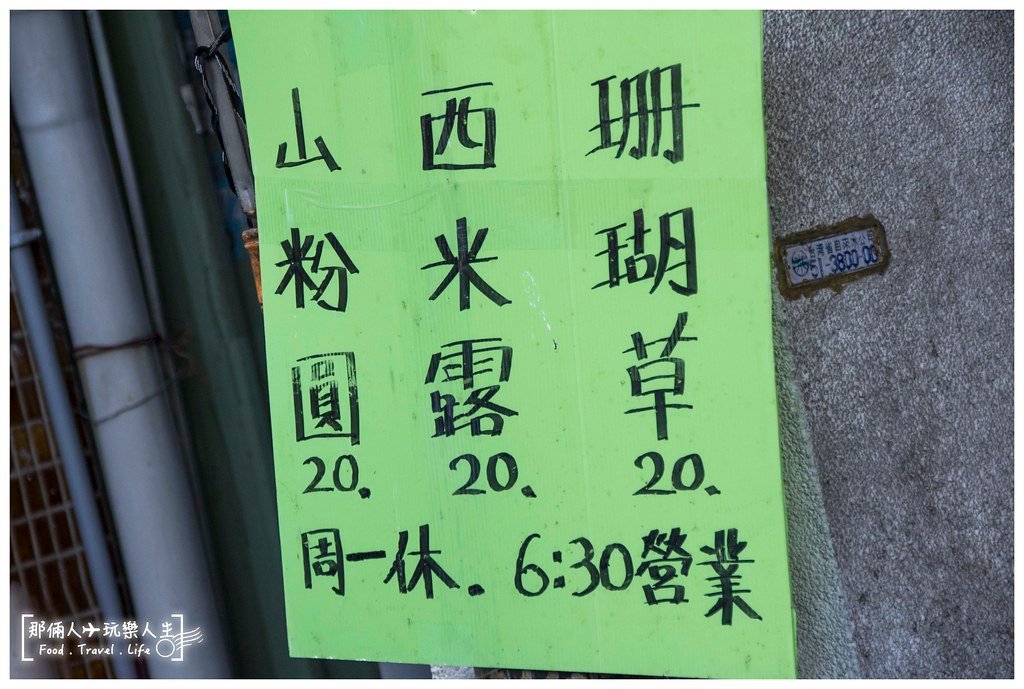 珊瑚草 20.
西米露 20.
山粉圓 20.
周一休. 6:30營業
台灣省自來水公司
51-3800-00
那倆人✈玩樂人生
Food . Travel . Life